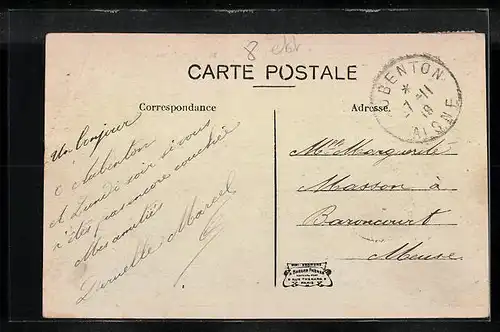 8
CARTE POSTALE
AUBENTON
* 7-11
18
AISNE
Correspondance
Adresse.
Un bonjour
d'Aubenton
A Lundi soir si vous
n'êtes pas encore couchée
Mes amitiés
Marcel
Melle Marguerite
Masson à
Baroncourt
Meuse
PARIS